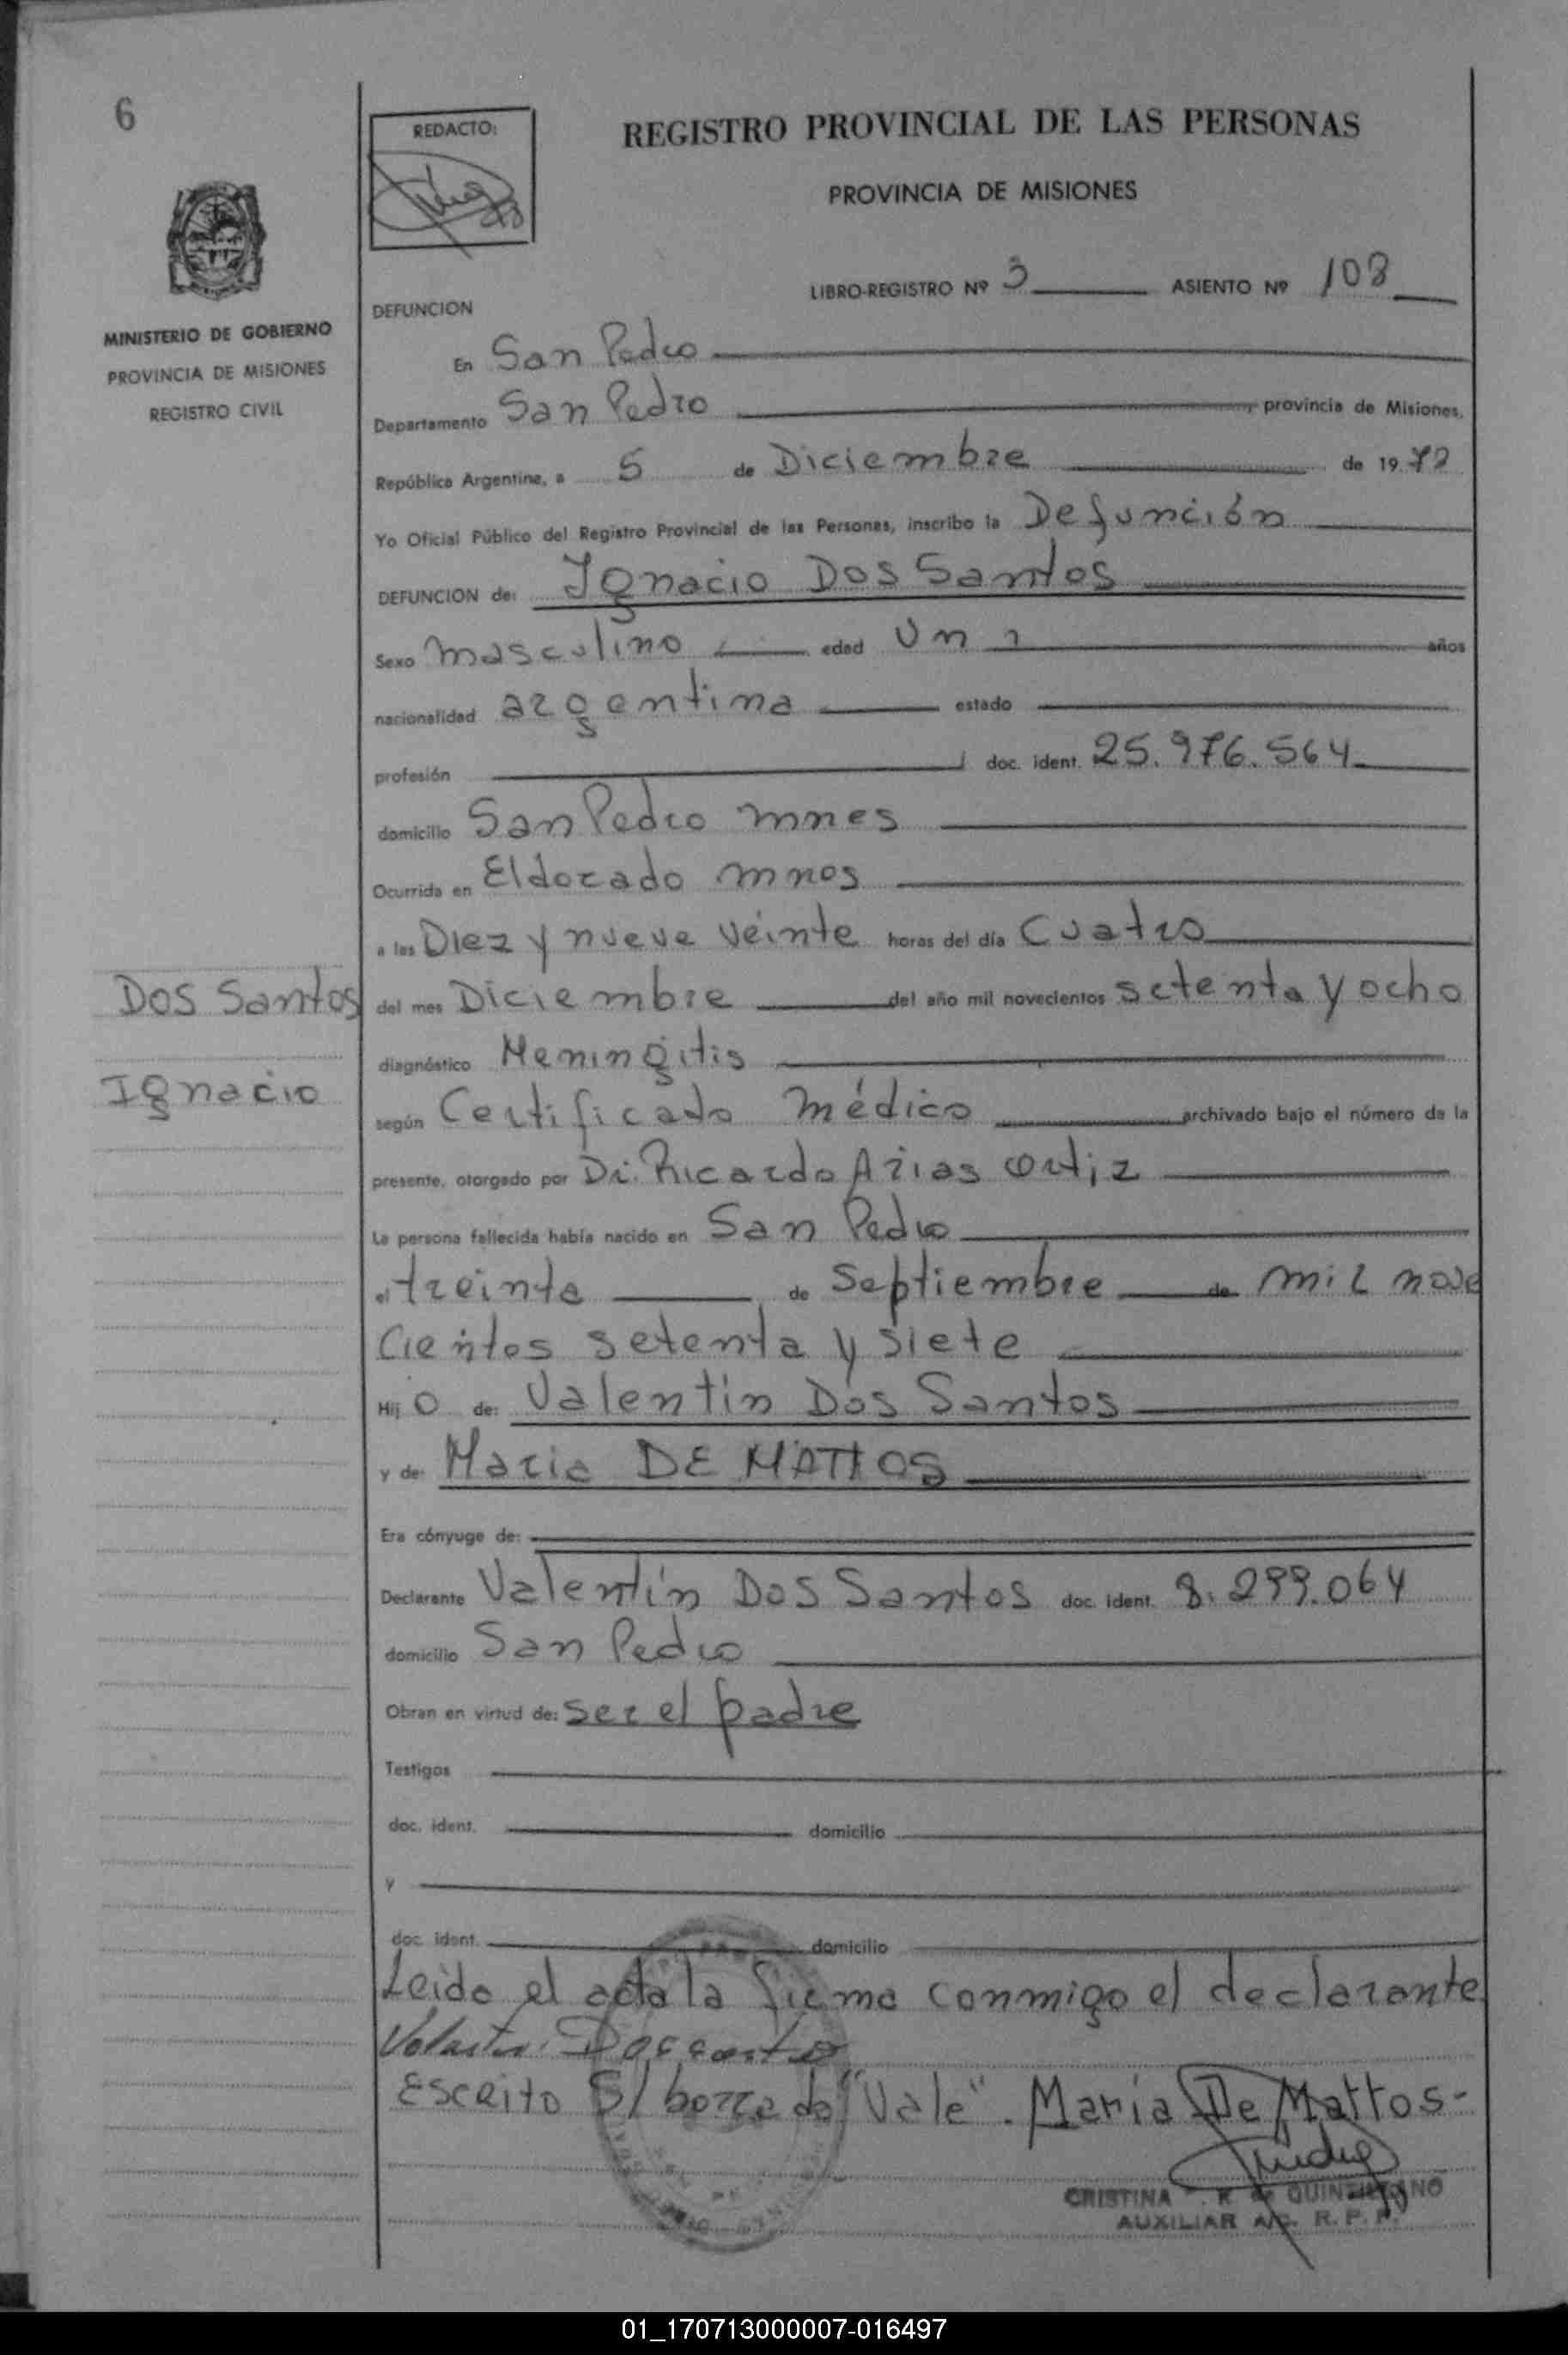 6
REDACTO:
REGISTRO PROVINCIAL DE LAS PERSONAS
PROVINCIA DE MISIONES
MINISTERIO DE GOBIERNO
PROVINCIA DE MISIONES
REGISTRO CIVIL
LIBRO-REGISTRO Nº 3 ASIENTO Nº 108
DEFUNCION
En San Pedro
Departamento San Pedro provincia de Misiones,
República Argentina, a 5 de Diciembre de 1978
Yo Oficial Público del Registro Provincial de las Personas, inscribo la Defunción
DEFUNCION de: Ignacio Dos Santos
Sexo masculino edad Un años
nacionalidad argentina estado
profesión doc. ident. 25.976.564
domicilio San Pedro mnes
Ocurrida en Eldorado mnes
a las Diez y nueve veinte horas del día Cuatro
Dos Santos
del mes Diciembre del año mil novecientos setenta y ocho
diagnóstico Meningitis
Ignacio
según Certificado médico archivado bajo el número de la
presente, otorgado por Dr. Ricardo Arias Ortiz
La persona fallecida había nacido en San Pedro
el treinta de Septiembre de mil nove
cientos setenta y siete
Hij o de: Valentin Dos Santos
y de: Maria DE MATTOS
Era cónyuge de:
Declarante Valentín Dos Santos doc. ident. 8.299.064
domicilio San Pedro
Obran en virtud de: ser el padre
Testigos
doc. ident. domicilio
y
doc. ident. domicilio
Leido el acta la firma conmigo el declarante
Escrito S/ borrado "Vale". María De Mattos-
CRISTINA K de QUINTANO
AUXILIAR A/C. R. P. P.
01_170713000007-016497